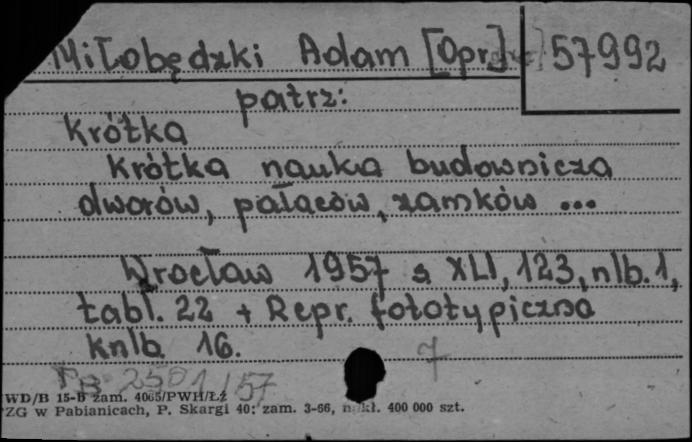 Miłobędzki Adam [Opr.] 57992
patrz:
Krótka
Krótka nauka budownicza
dworów, pałaców, zamków ...
Wrocław 1957 s XLI, 123, nlb. 1,
tabl. 22 + Repr. fototypiczna
knlb 16.
7
PB 2501/57
WD/B 15-B zam. 4065/PWH/Łź
ZG w Pabianicach, P. Skargi 40; zam. 3-66, nakł. 400 000 szt.